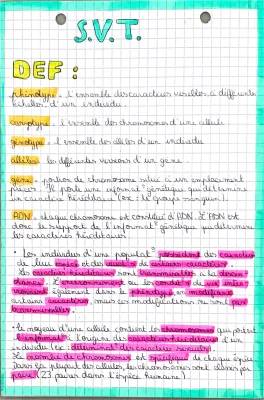 S.V.T.
DEF :
phénotype : l'ensemble des caractères visibles à différentes
échelles d'un individu.
caryotype : l'ensemble des chromosomes d'une cellule
génotype : l'ensemble des allèles d'un individu
allèles : les différentes versions d'un gène
gène : portion de chromosome situé à un emplacement
précis. Il porte une informat° génétique qui détermine
un caractère héréditaire (ex : le groupe sanguin)
ADN : chaque chromosome est constitué d'ADN. L'ADN est
donc le support de l'informat° génétique qui détermine
les caractères héréditaires
• Les individus d'une populat° possèdent des caractères
de leur espèce et des de certains caractères.
Les caractères héréditaires sont transmissibles à la descen-
dance. L'environnement ou les condit° de vie
peuvent dans le phénotype en modifiant
certains caractères, mais ces modifications ne sont pas
transmissibles.
• Le noyau d'une cellule contient les chromosomes qui portent
l'informat° à l'origine des caractères héréditaires d'un
individu (ex : déterminat° des caractères sexuels).
Le nombre de chromosomes est spécifique de chaque espèce
Dans la plupart des cellules, les chromosomes sont réunis par
paire (23 paires dans l'espèce humaine)